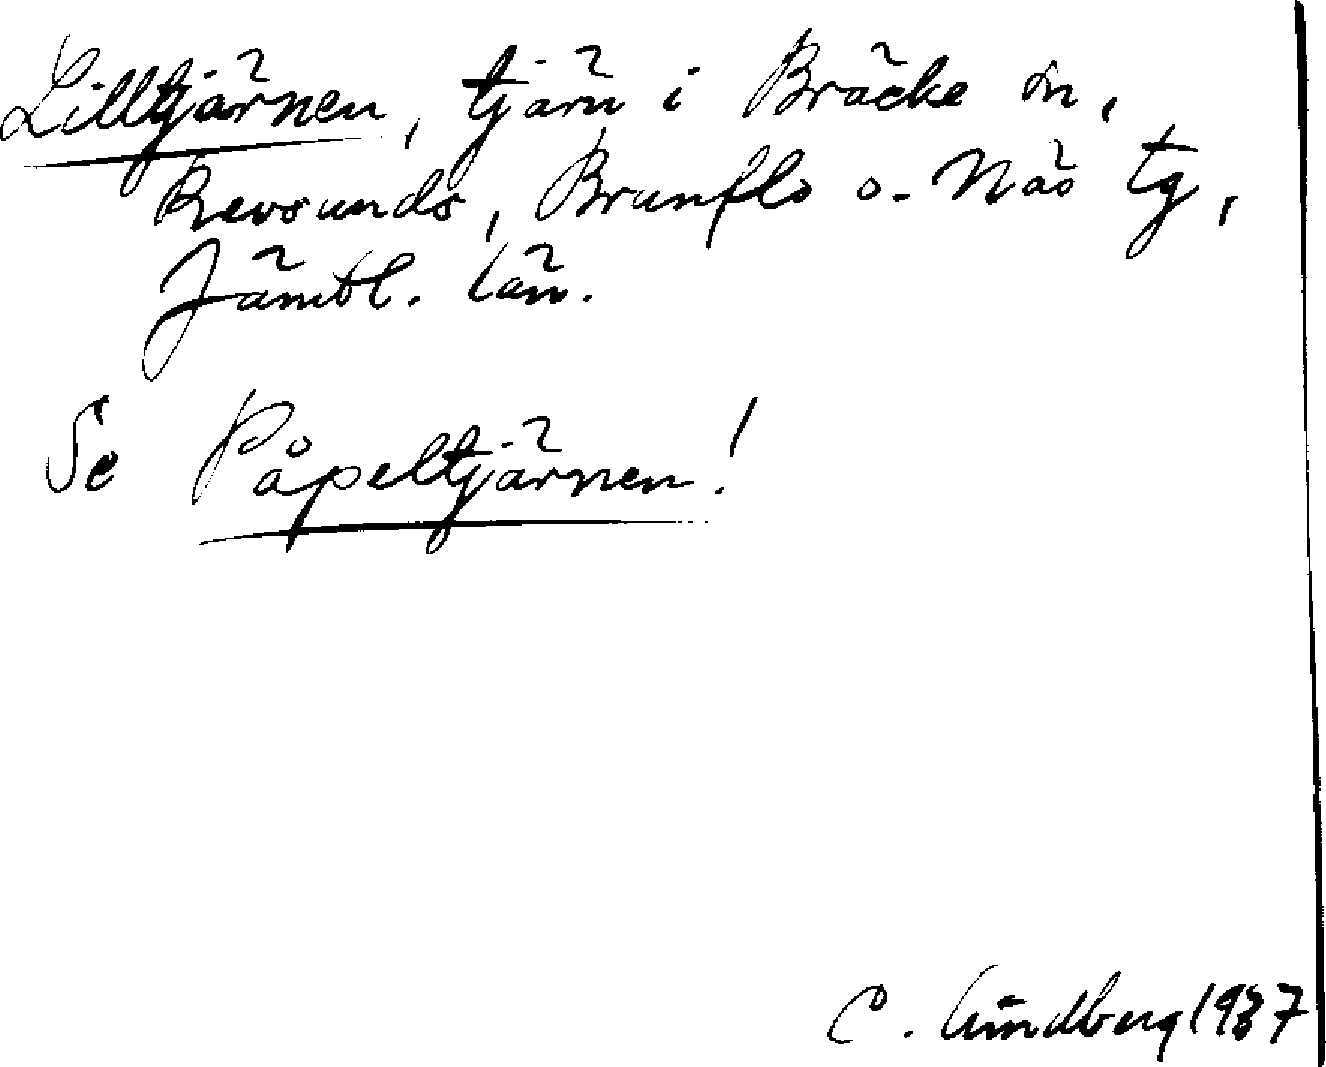 Lilltjärnen, tjärn i Bräcke sn,
Revsunds, Brunflo o. Näs tg,
Jämtl. län.
Se Påpeltjärnen!
C. Lindberg 1937